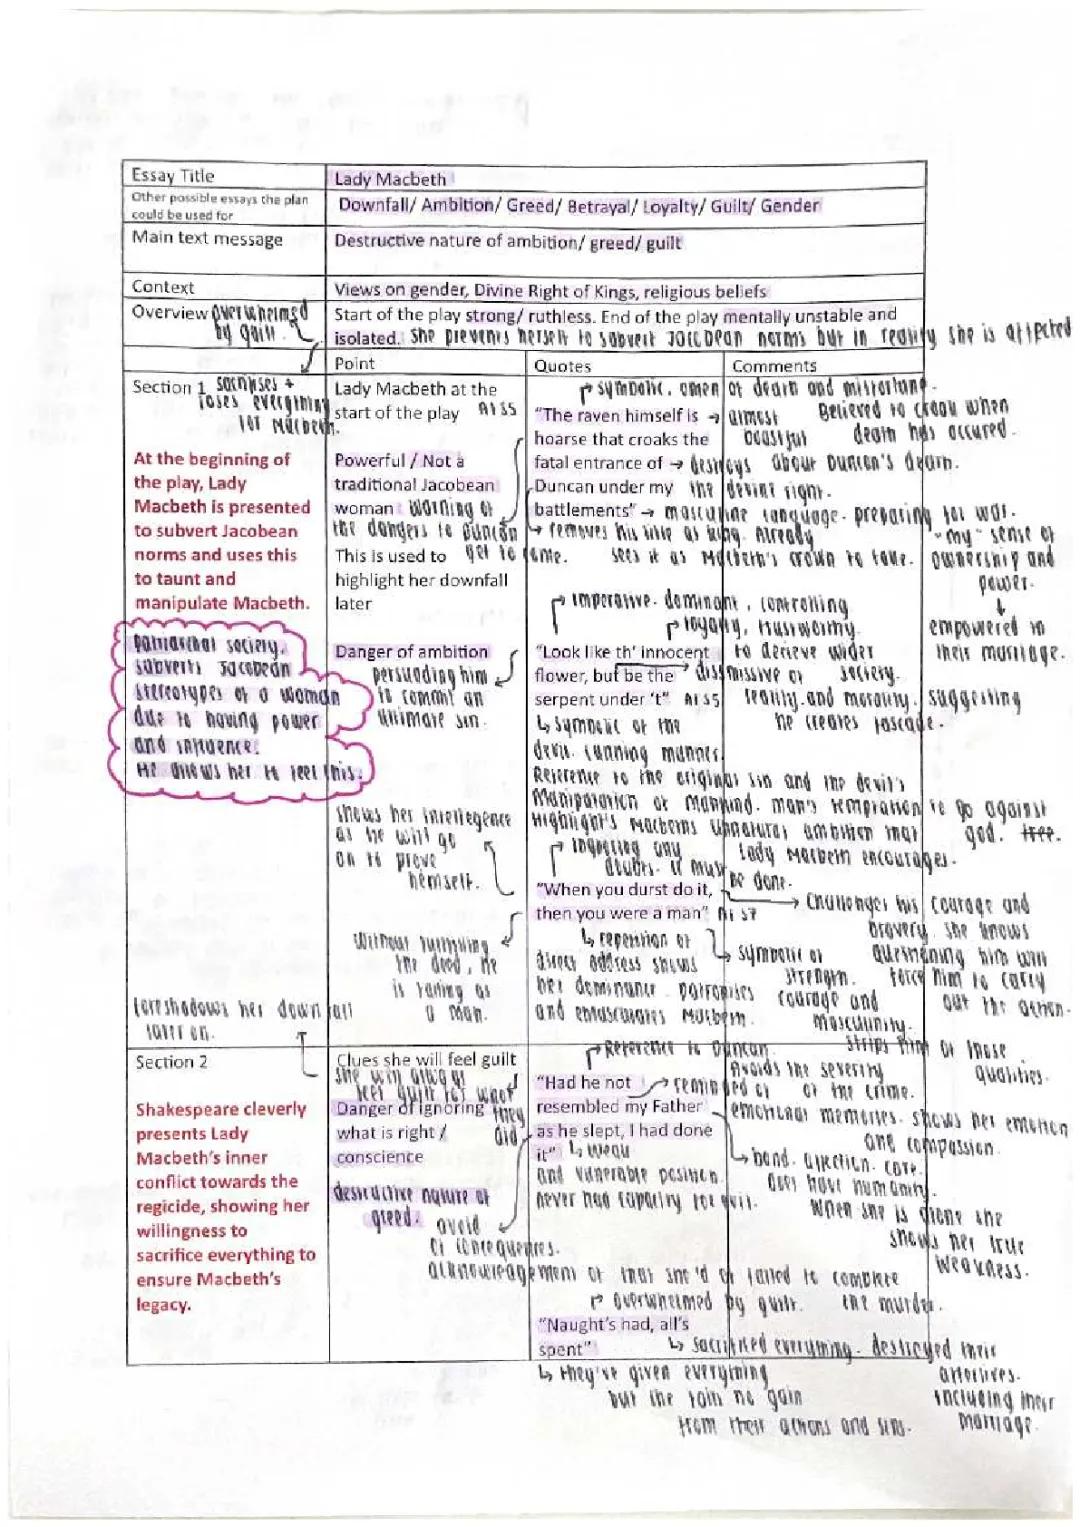 Essay Title
Lady Macbeth
Other possible essays the plan could be used for
Downfall/ Ambition/ Greed/ Betrayal/ Loyalty/ Guilt/ Gender
Main text message
Destructive nature of ambition/ greed/ guilt
Context
Views on gender, Divine Right of Kings, religious beliefs
Overview
overwhelmed
by guilt.
Start of the play strong/ ruthless. End of the play mentally unstable and
isolated. she presents herself to subvert Jacobean norms but in reality she is affected
Point
Quotes
Comments
Section 1
sacrifices +
loses everything
for Macbeth.
At the beginning of
the play, Lady
Macbeth is presented
to subvert Jacobean
norms and uses this
to taunt and
manipulate Macbeth.
patriarchal society.
subverts Jacobean
stereotypes of a woman
due to having power
and influence.
He allows her to feel this.
foreshadows her downfall
later on.
Lady Macbeth at the
start of the play A1S5
Powerful / Not a
traditional Jacobean
woman warning of
the dangers to Duncan
This is used to get to come.
highlight her downfall
later
Danger of ambition
persuading him
to commit an
ultimate sin.
shows her intellegence
as he will go
on to prove
himself.
without fulfilling
the deed, he
is failing as
a man.
symbolic. omen of death and misfortune.
"The raven himself is
hoarse that croaks the
fatal entrance of
Duncan under my
battlements"
almost
beastful
Believed to croak when
death has occured.
destroys about Duncan's death.
the devine right.
masculine language. preparing for war.
removes his title as king. Already
sees it as Macbeth's crown to take.
"my" sense of
ownership and
power.
empowered in
their marriage.
imperative. dominant, controlling
loyalty, trustworthy.
"Look like th' innocent
flower, but be the
serpent under 't" A1S5
to decieve wider
society.
dismissive of
reality and morality. suggesting
he creates facade.
symbolic of the
devil. cunning manner.
Reference to the original sin and the devil's
Manipulation of mankind. man's temptation to go against
god.
Highlight's Macbeths unnatural ambition that
Lady Macbeth encourages.
ignoring any
doubts. it must
be done.
"When you durst do it,
then you were a man" A1S7
Challenges his courage and
bravery. she knows
questioning him will
force him to carry
out the action.
repetition of
direct address shows
her dominance. patronises
and emasculates Macbeth.
symbolic of
strength.
courage and
masculinity.
strips him of those
qualities.
Section 2
Shakespeare cleverly
presents Lady
Macbeth's inner
conflict towards the
regicide, showing her
willingness to
sacrifice everything to
ensure Macbeth's
legacy.
Clues she will feel guilt
she will always
feel guilt for what
they
did
Danger of ignoring
what is right /
conscience
destructive nature of
greed.
avoid
of consequences.
acknowledgement of that she'd of failed to complete
the murder.
Reference to Duncan.
Avoids the severity
of the crime.
"Had he not
resembled my Father
as he slept, I had done
it"
weak
and vulnerable position.
never had capacity for evil.
reminded of
emotional memories. shows her emotion
and compassion.
bond. affection. care.
does have humanity.
When she is alone she
shows her true
weakness.
overwhelmed by guilt.
"Naught's had, all's
spent"
sacrificed everything. destroyed their
afterlives.
including their
marriage.
they've given everything
but the gain no gain
from their actions and sins.